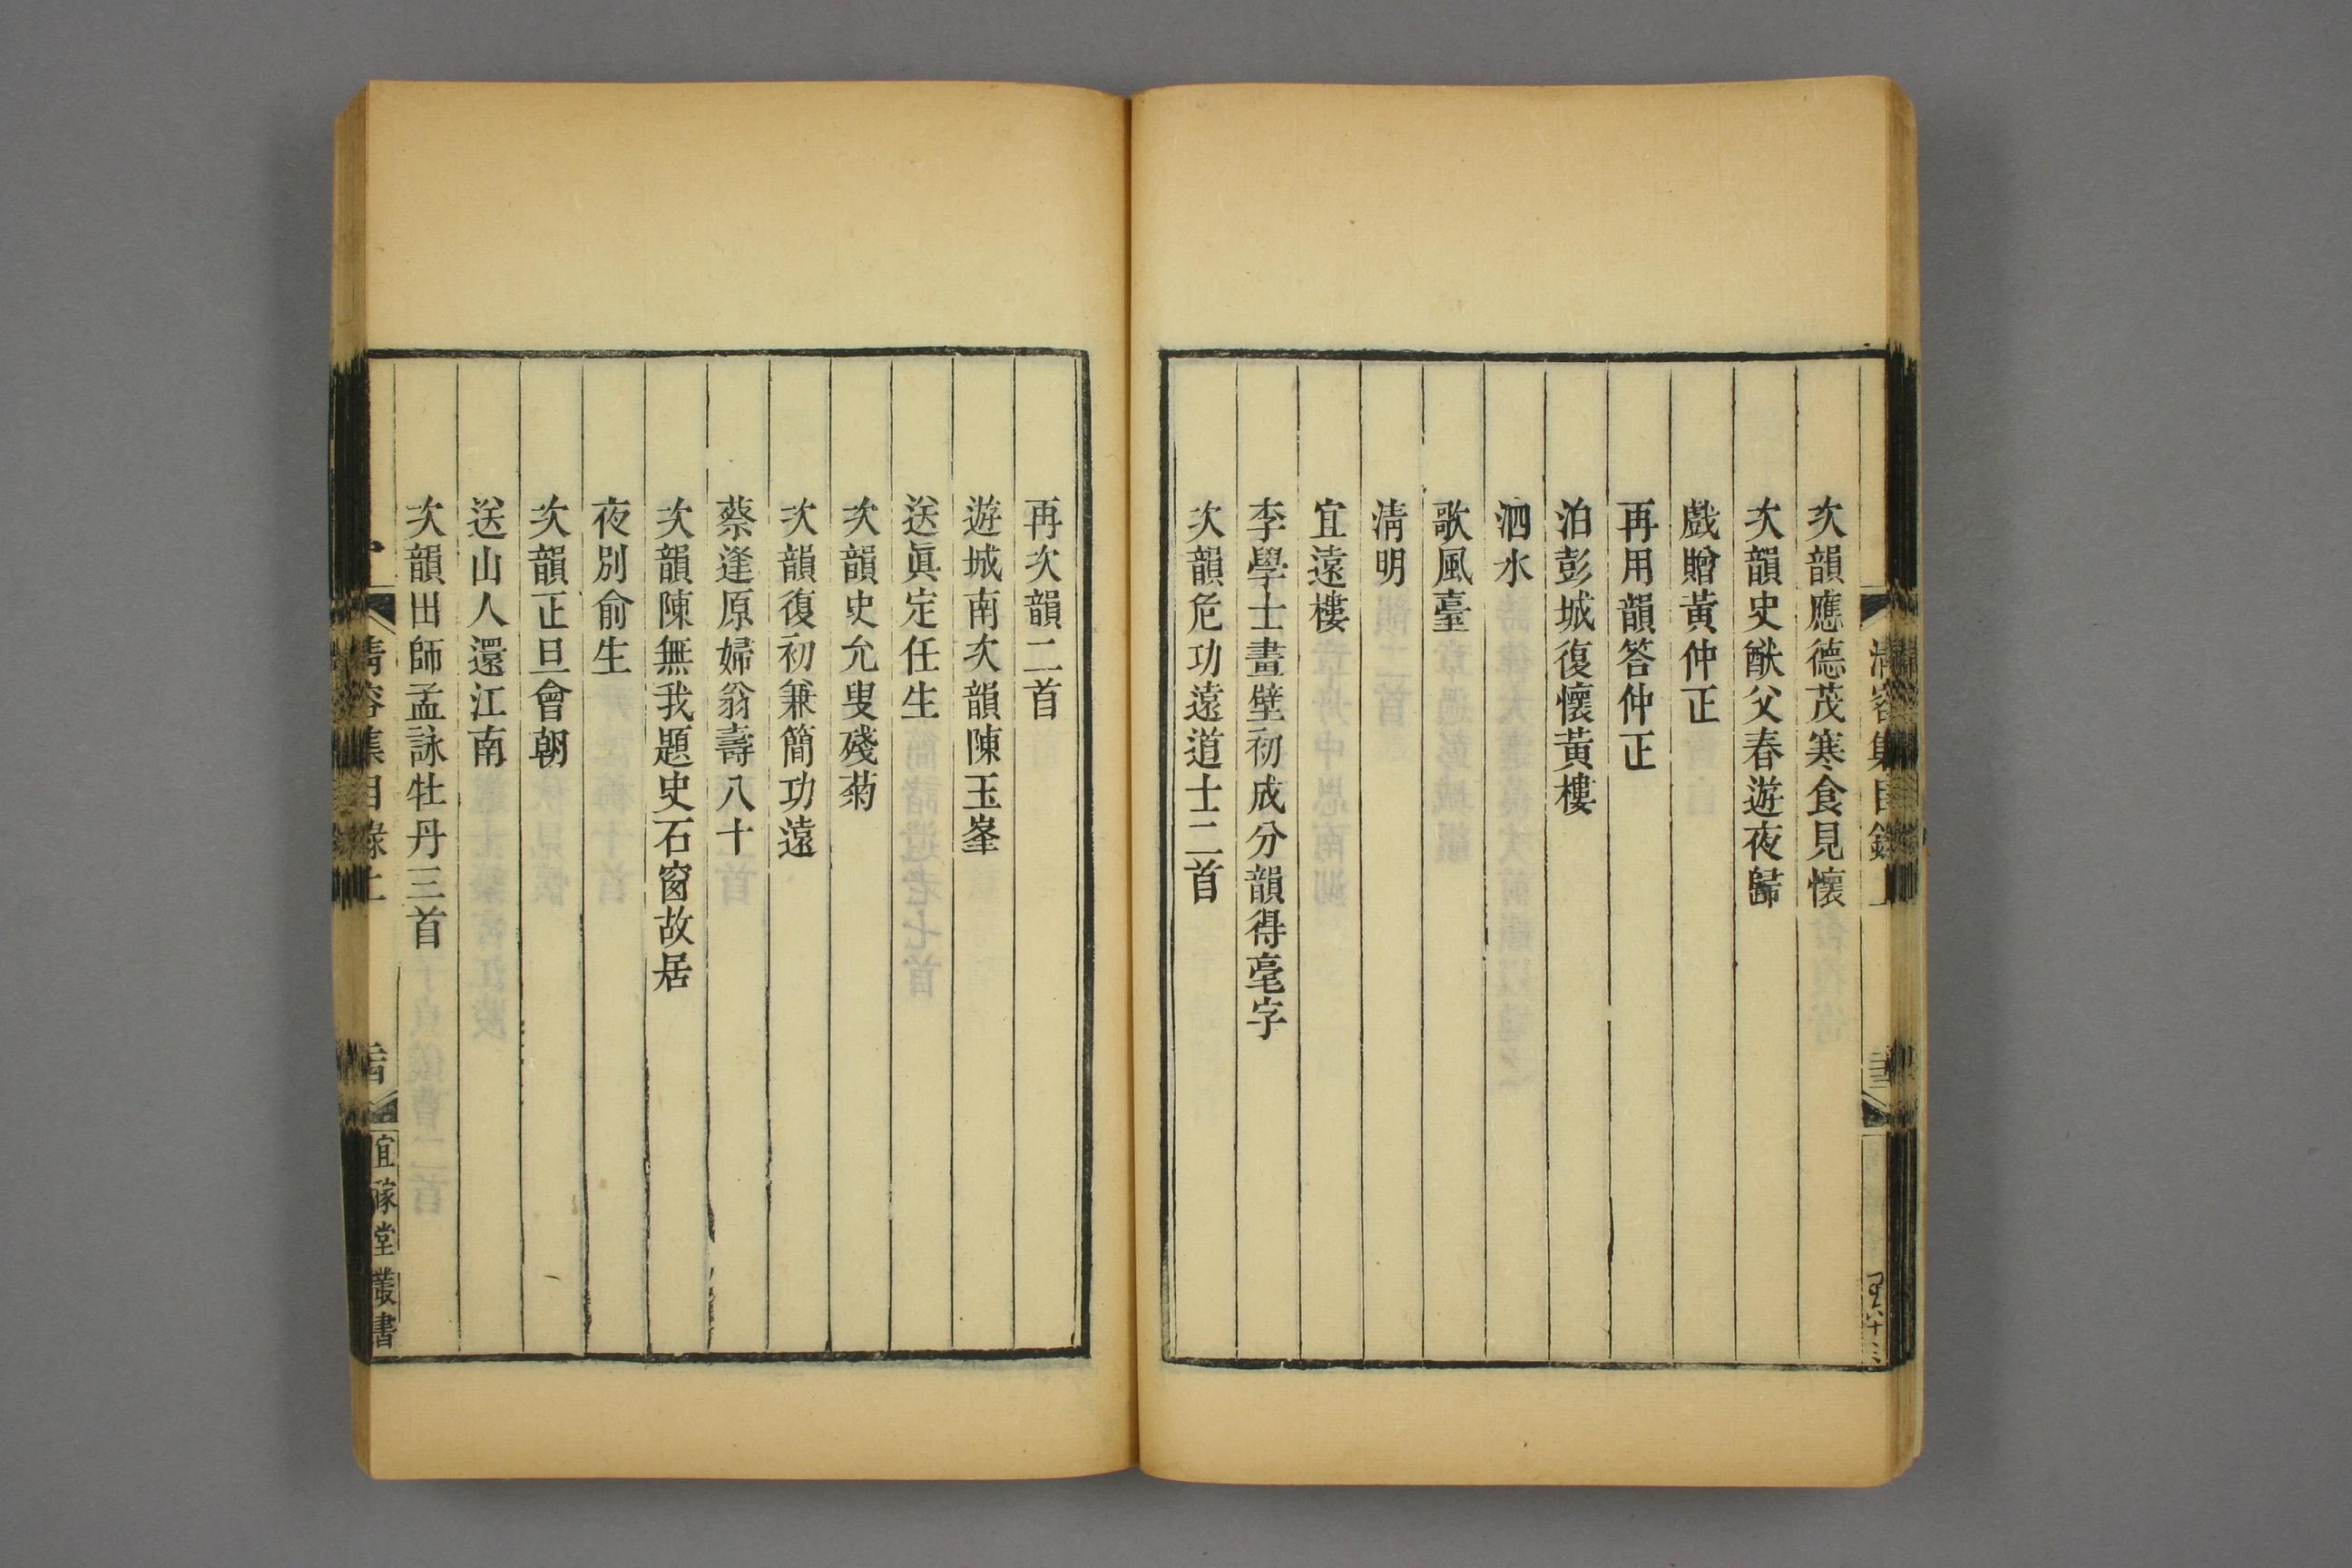 次韻應德茂寒食見懷
次韻史猷父春遊夜歸
戲贈黃仲正
再用韻答仲正
泊彭城復懷黃樓
泗水
歌風臺
淸明
宜遠樓
李學士畫壁初成分韻得毫字
次韻危功遠道士二首
再次韻二首
遊城南次韻陳玉峯
送眞定任生
次韻史允叟殘菊
次韻復初兼簡功遠
蔡逢原婦翁壽八十
次韻陳無我題史石窗故居
夜別俞生
次韻正旦會朝
送山人還江南
次韻田師孟詠牡丹三首
清容集目錄上
宜稼堂叢書